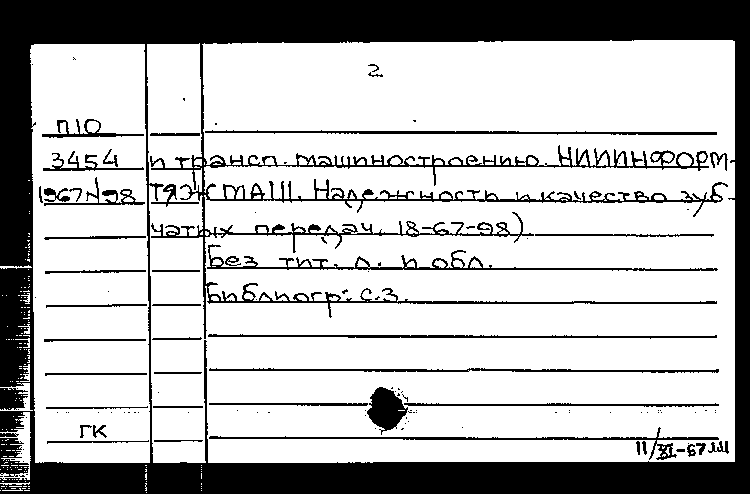 2
П10
3454 и трансп. машиностроению. НИИИНФОРМ-
1967 N98 ТЯЖМАШ. Надежность и качество зуб-
чатых передач, 18-67-98)
Без тит. л. и обл.
Библиогр: с.3.
ГК
11/XI-67